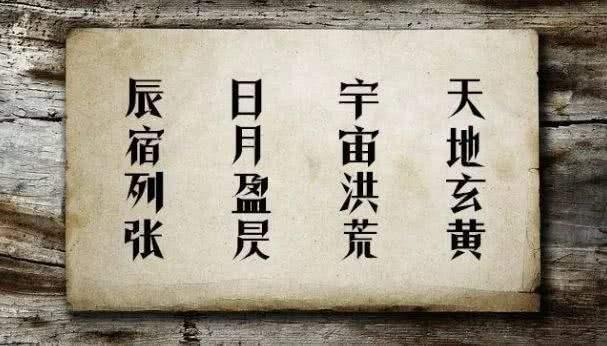 天地玄黄
宇宙洪荒
日月盈昃
辰宿列张